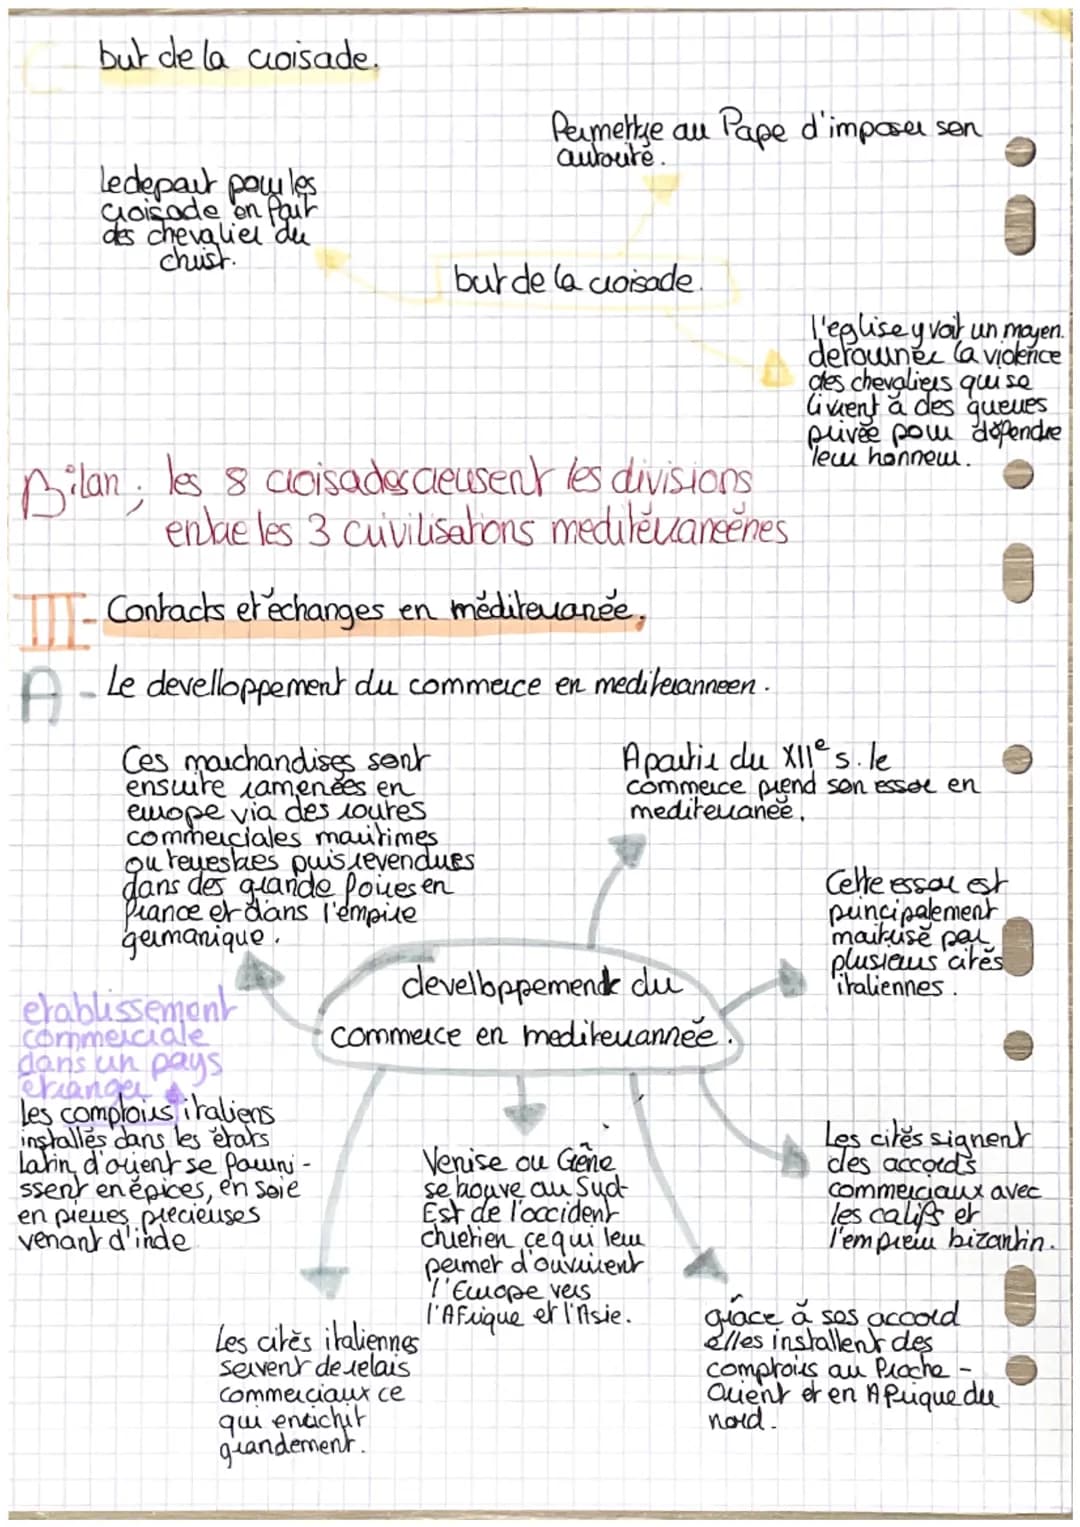 but de la croisade.
Permettre au Pape d'imposer son
autorité.
le depart pour les
croisade en fait
des chevalier du
christ.
but de la croisade.
l'eglise y voit un moyen.
detourner la violence
des chevaliers qui se
livrent à des guerres
privée pour défendre
leur honneur.
Bilan; les 8 croisades creusent les divisions
entre les 3 cuivilisations mediterranéenes
III- Contacts et échanges en méditerranée.
A - Le develloppement du commerce en mediteranneen.
Ces marchandises sont
ensuite ramenées en
europe via des routes
commerciales maritimes
ou terrestres puis revendues
dans des grande foires en
france et dans l'empire
germanique.
A partir du XIIe s. le
commerce prend son essor en
mediterranée.
Cette essor est
principalement
maitrisé par
plusieurs cités
italiennes.
develloppement du
commerce en mediterrannée.
etablissement
commerciale
dans un pays
etranger
Les comptoirs italiens
installés dans les états
latin d'orient se fourni-
ssent en épices, en soie
en pierres precieuses
venant d'inde
Venise ou Gêne
se trouve au Sud
Est de l'occident
chretien ce qui leur
permet d'ouvrirent
l'Europe vers
l'Afrique et l'Asie.
Les cités signent
des accords
commerciaux avec
les califs et
l'empreiu bizantin.
grâce à ses accord
elles installent des
comptoirs au Proche-
Orient et en Afrique du
nord.
Les cités italiennes
servent de relais
commerciaux ce
qui enrichit
grandement.